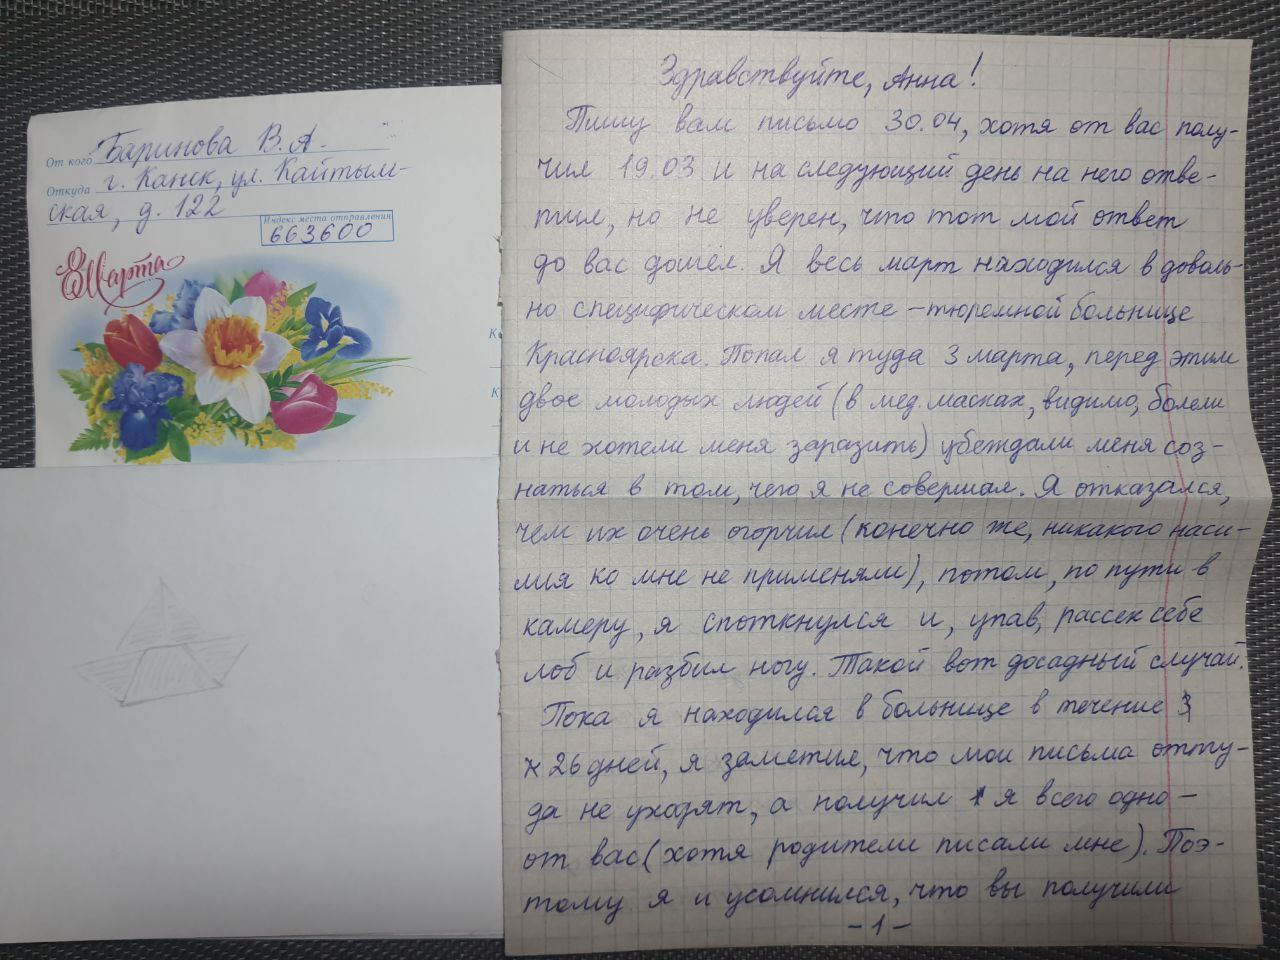 От кого Баринова В. А.
Откуда г. Канск, ул. Кайтым-
ская, д. 122
Индекс места отправления
663600
8 Марта
К
К
Здравствуйте, Анна!
Пишу вам письмо 30.04, хотя от вас полу-
чил 19.03 и на следующий день на него отве-
тил, но не уверен, что тот мой ответ
до вас дошёл. Я весь март находился в доволь-
но специфическом месте – тюремной больнице
Красноярска. Попал я туда 3 марта, перед этим
двое молодых людей (в мед. масках, видимо, болели
и не хотели меня заразить) убеждали меня соз-
наться в том, чего я не совершал. Я отказался,
чем их очень огорчил (конечно же, никакого наси-
лия ко мне не применяли), потом, по пути в
камеру, я споткнулся и, упав, рассек себе
лоб и разбил ногу. Такой вот досадный случай.
Пока я находился в больнице в течение
26 дней, я заметил, что мои письма отту-
да не уходят, а получил я всего одно –
от вас (хотя родители писали мне). Поэ-
тому я и усомнился, что вы получили
-1-